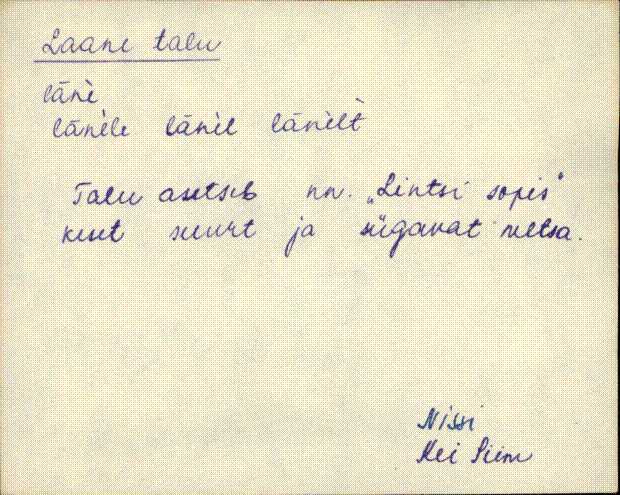 Laane talu
lāne
lānèle lānèl lānèlt
Talu asetseb nn. „Lintsi sopis"
keset suurt ja sügavat metsa.
Nissi
Siim